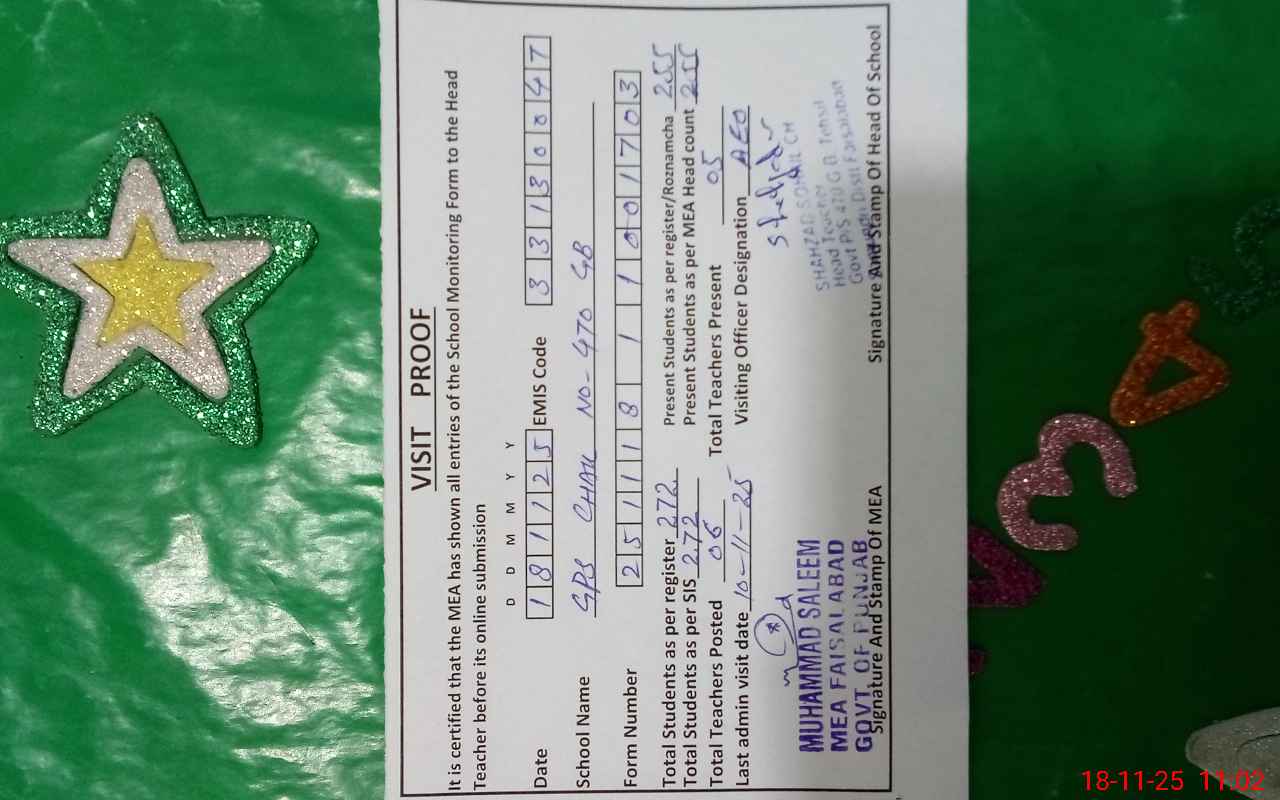 VISIT PROOF
It is certified that the MEA has shown all entries of the School Monitoring Form to the Head
Teacher before its online submission
D D M M Y Y
Date 1 8 1 1 2 5 EMIS Code 3 3 1 3 0 0 4 7
School Name GPS CHAK NO- 470 GB
Form Number 2 5 1 1 1 8 1 1 1 0 0 1 7 0 3
Total Students as per register 272 Present Students as per register/Roznamcha 255
Total Students as per SIS 272 Present Students as per MEA Head count 255
Total Teachers Posted 06 Total Teachers Present 05
Last admin visit date 10-11-25 Visiting Officer Designation AEO
MUHAMMAD SALEEM
MEA FAISALABAD
GOVT. OF PUNJAB
Signature And Stamp Of MEA
SHAHZAD SOHAIL CH
Head Teacher
Govt P/S 470 G.B. Tehsil
Distt Faisalabad
Signature And Stamp Of Head Of School
3
4
5
18-11-25 11:02